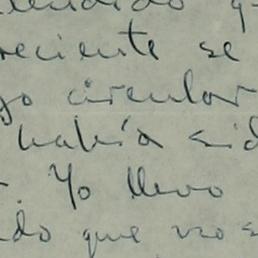 reciente se
circular
había sid
. Yo llevo
do que no s